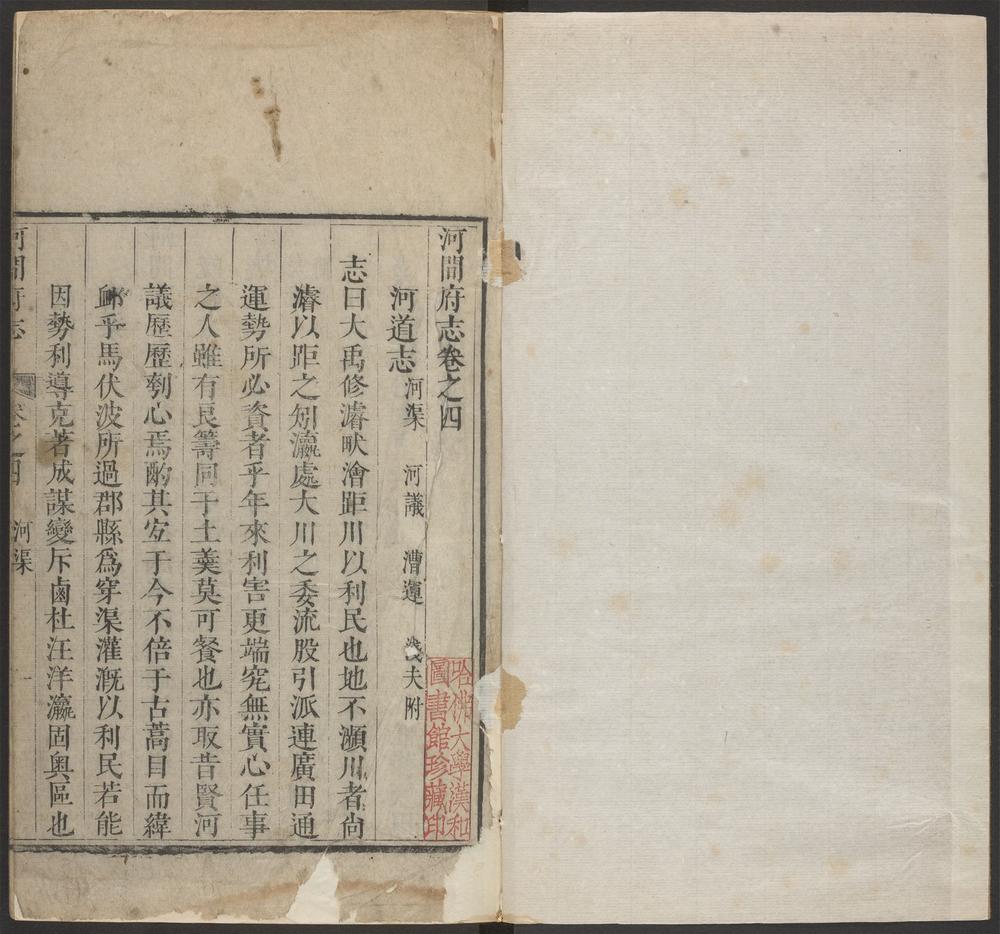 河間府志卷之四
河道志 河渠 河議 漕運 淺夫附
志曰大禹修濬畎澮距川以利民也地不瀕川者尙
濬以距之矧瀛處大川之委流股引派連廣田通
運勢所必資者乎年來利害更端究無實心任事
之人雖有良籌同于土羹莫可餐也亦取昔賢河
議歷歷刳心焉酌其宜于今不倍于古蒿目而緯
䘏乎馬伏波所過郡縣爲穿渠灌溉以利民若能
因勢利導克著成謀變斥鹵杜汪洋瀛固奧區也
河間府志 卷之四 河渠 一
哈佛大學漢和
圖書館珍藏印